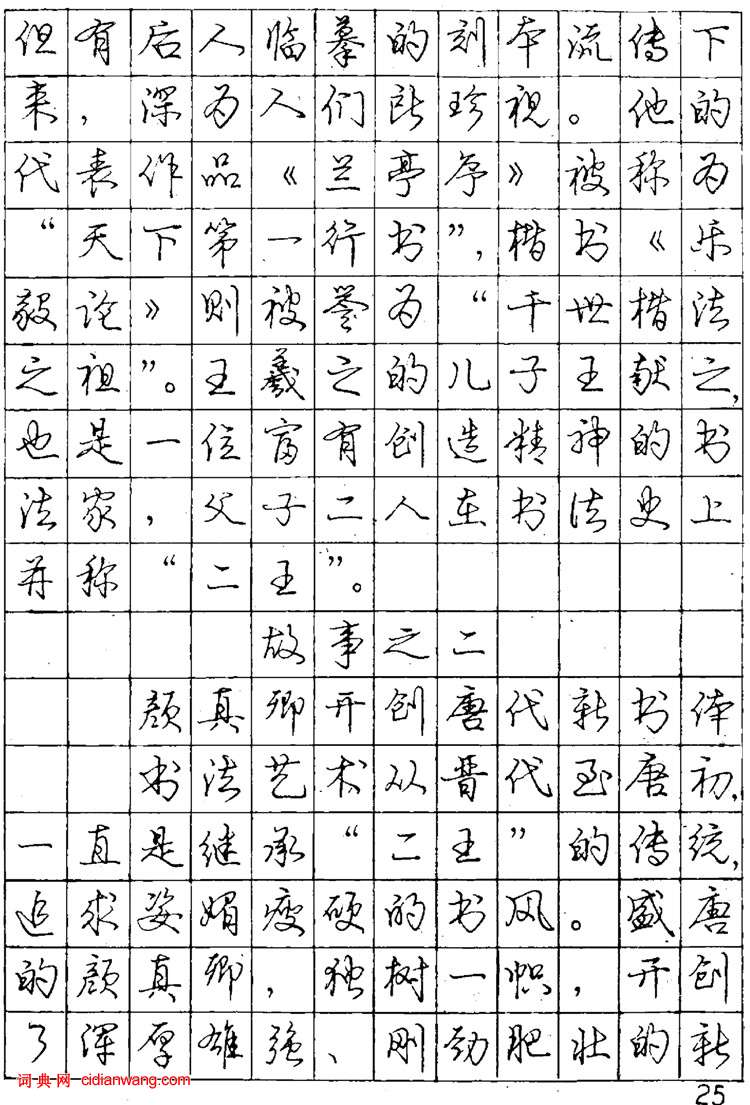 但有后人临摹的刻本流传下
来，深为人们所珍视。他的
代表作品《兰亭序》被称为
“天下第一行书”，楷书《乐
毅论》则被誉为“千世楷法
之祖”。王羲之的儿子王献之，
也是一位富有创造精神的书
法家，父子二人在书法史上
并称“二王”。
故事之二
颜真卿开创唐代新书体
书法艺术从晋代至唐初，
一直是继承“二王”的传统，
追求姿媚瘦硬的书风。盛唐
的颜真卿，独树一帜，开创
了浑厚雄强、刚劲肥壮的新
词典网 cidianwang.com
25